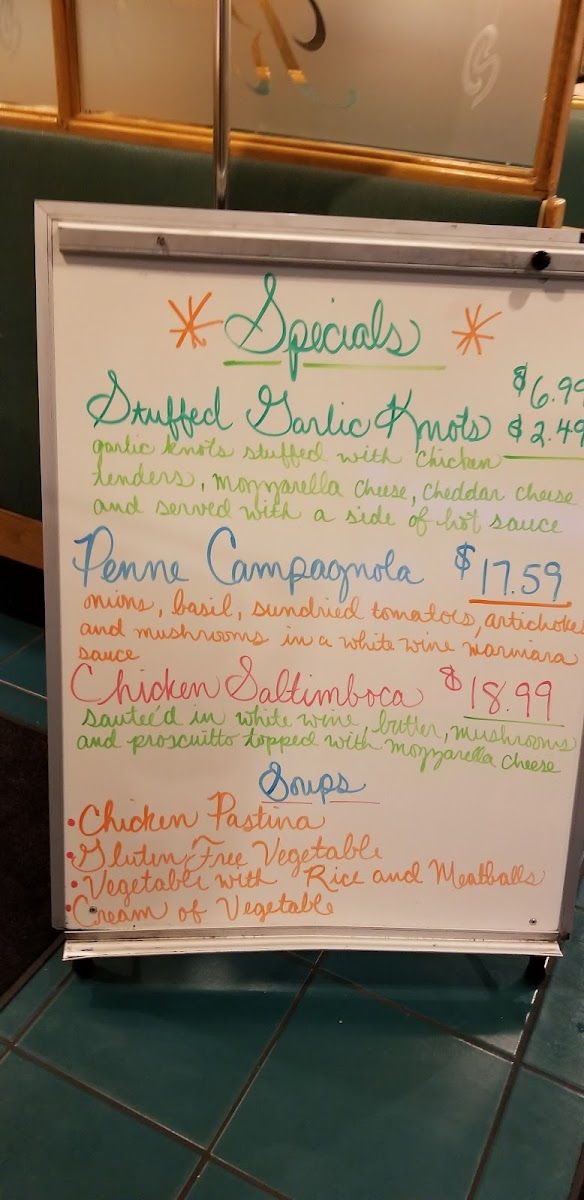 Specials
$6.99
Stuffed Garlic Knots $2.49
garlic knots stuffed with chicken
tenders, mozzarella cheese, cheddar cheese
and served with a side of hot sauce
Penne Campagnola $17.59
onions, basil, sundried tomatoes, artichokes
and mushrooms in a white wine marinara
sauce
Chicken Saltimboca $18.99
sauteé'd in white wine, butter, mushrooms
and proscuitto topped with mozzarella cheese
Soups
• Chicken Pastina
• Gluten Free Vegetable
• Vegetable with Rice and Meatballs
• Cream of Vegetable